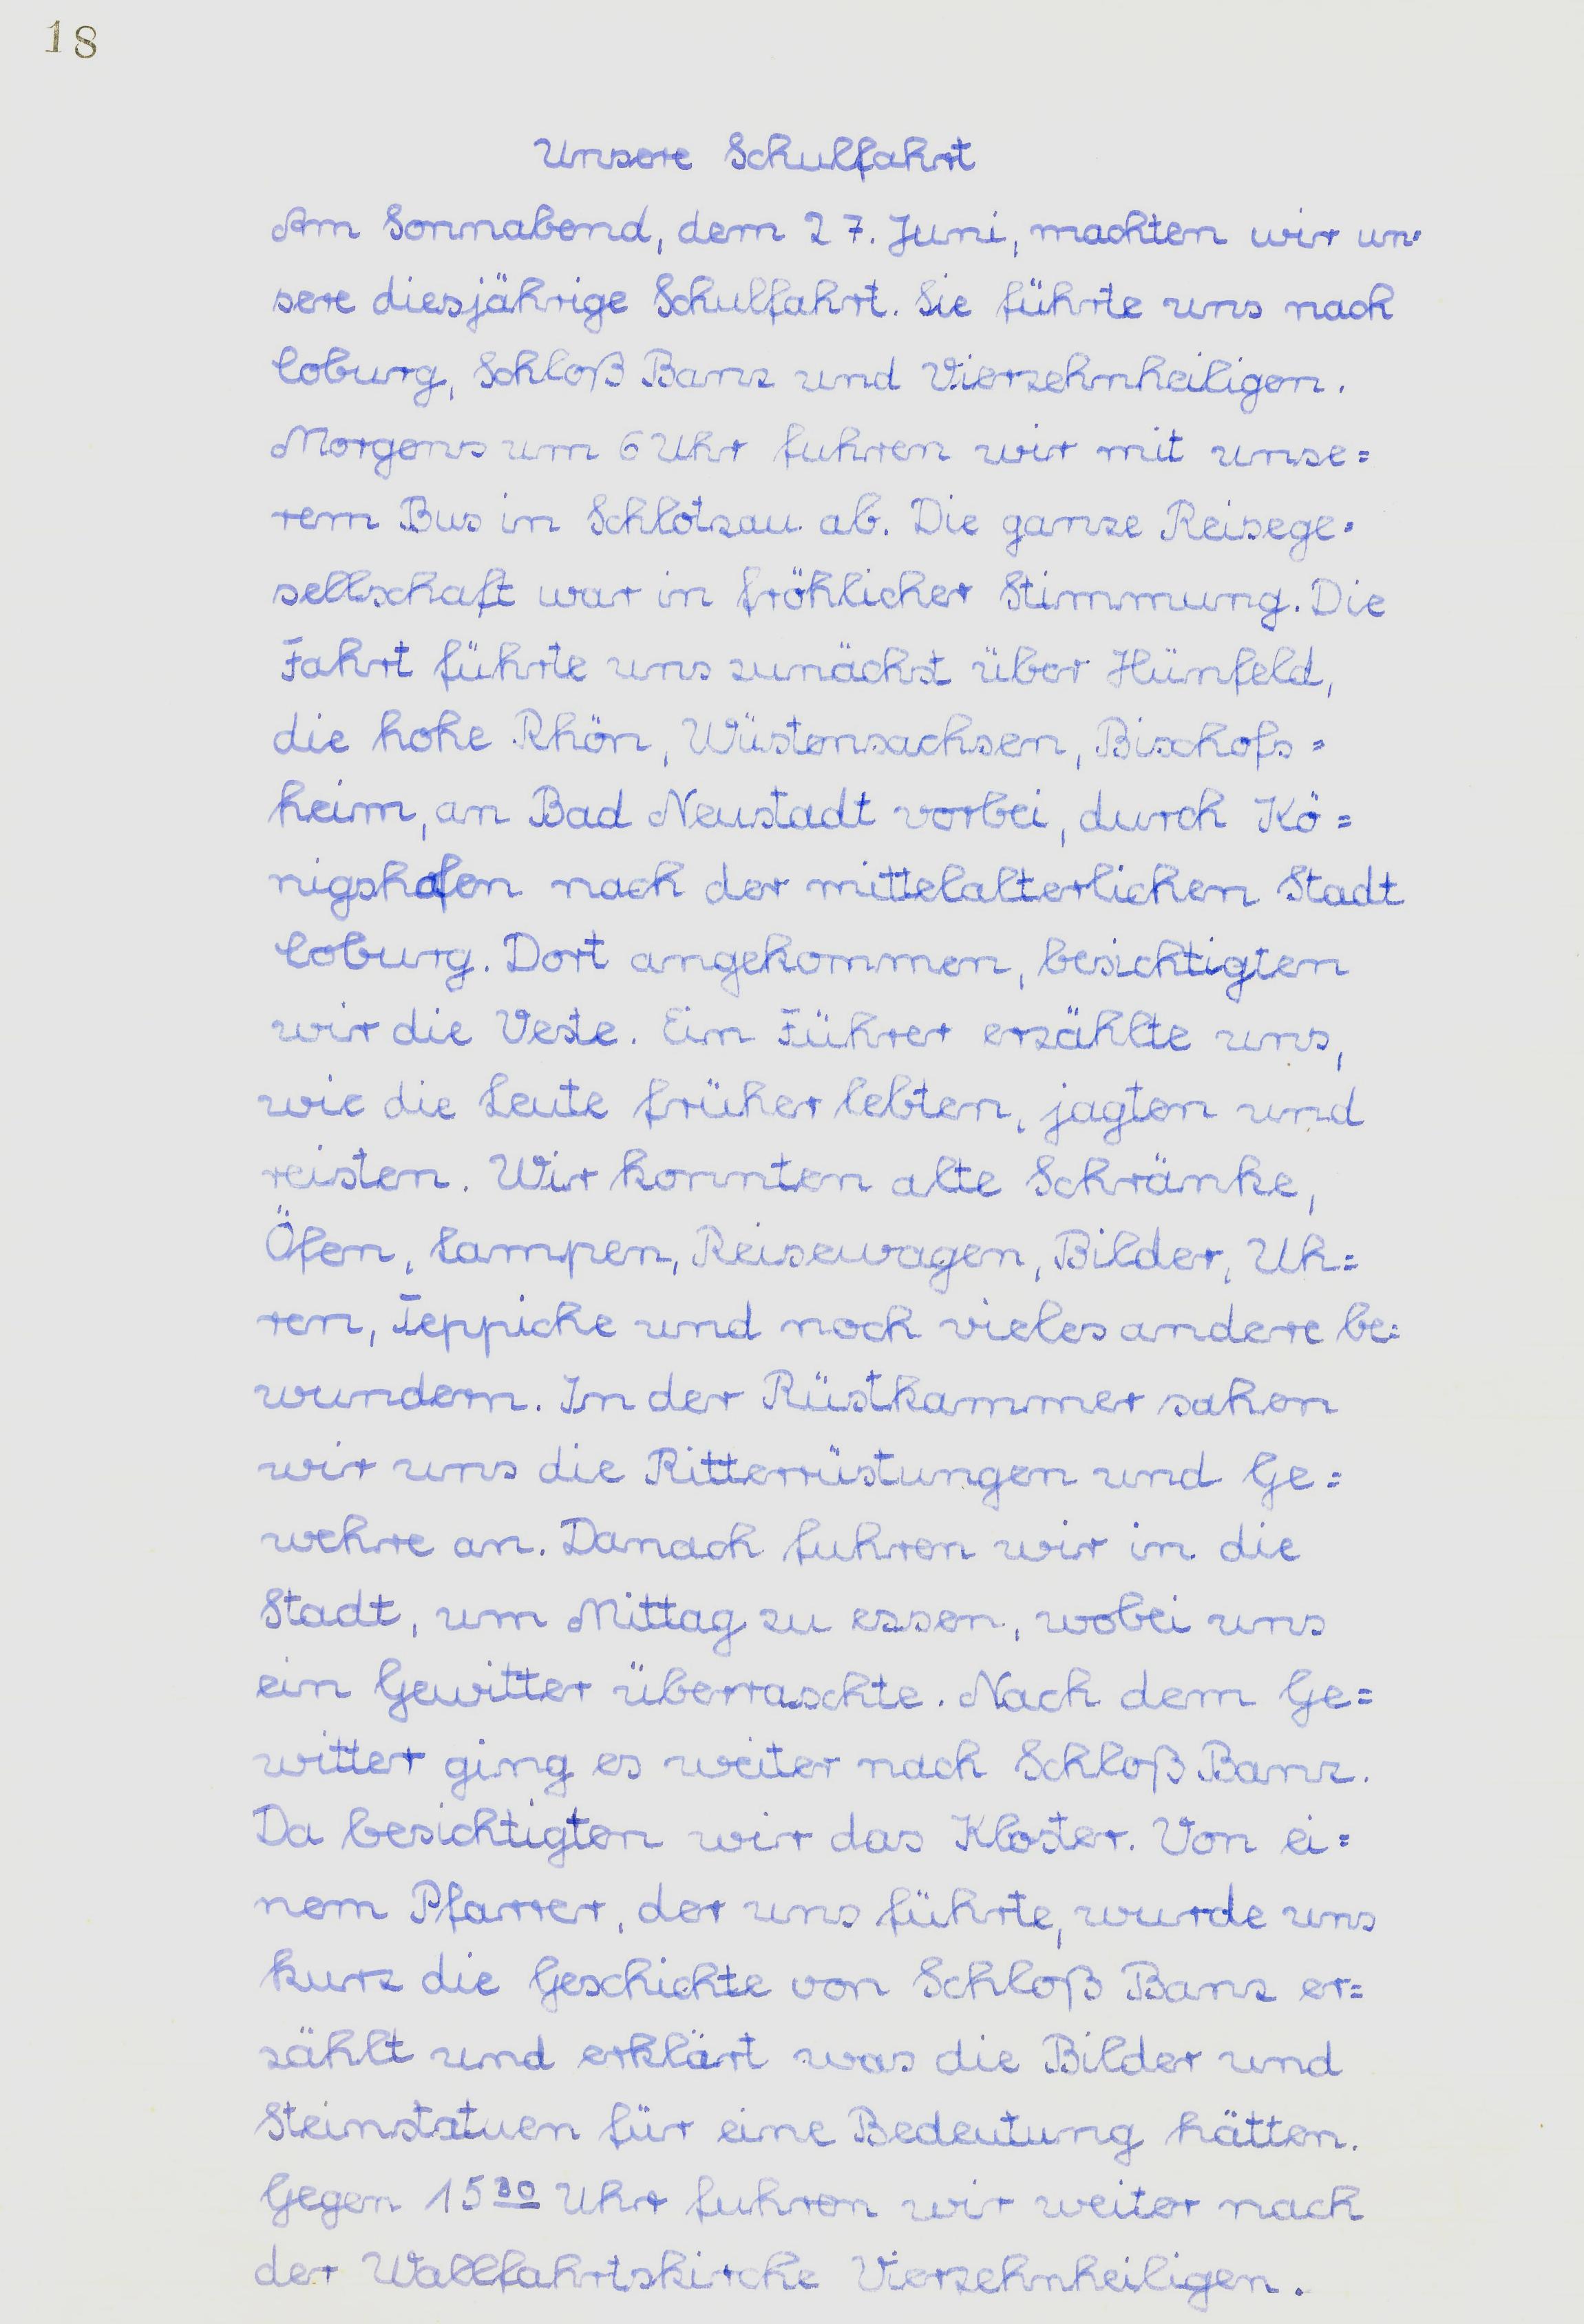 18
Unsere Schulfahrt
Am Sonnabend, dem 27. Juni, machten wir un=
sere diesjährige Schulfahrt. Sie führte uns nach
Coburg, Schloß Banz und Vierzehnheiligen.
Morgens um 6 Uhr fuhren wir mit unse=
rem Bus in Schlotzau ab. Die ganze Reisege=
sellschaft war in fröhlicher Stimmung. Die
Fahrt führte uns zunächst über Hünfeld,
die hohe Rhön, Wüstensachsen, Bischofs=
heim, an Bad Neustadt vorbei, durch Kö=
nigshofen nach der mittelalterlichen Stadt
Coburg. Dort angekommen, besichtigten
wir die Veste. Ein Führer erzählte uns,
wie die Leute früher lebten, jagten und
reisten. Wir konnten alte Schränke,
Öfen, Lampen, Reisewagen, Bilder, Uh=
ren, Teppiche und noch vieles andere be=
wundern. In der Rüstkammer sahen
wir uns die Ritterrüstungen und Ge=
wehre an. Danach fuhren wir in die
Stadt, um Mittag zu essen, wobei uns
ein Gewitter überraschte. Nach dem Ge=
witter ging es weiter nach Schloß Banz.
Da besichtigten wir das Kloster. Von ei=
nem Pfarrer, der uns führte, wurde uns
kurz die Geschichte von Schloß Banz er=
zählt und erklärt was die Bilder und
Steinstatuen für eine Bedeutung hätten.
Gegen 15³⁰ Uhr fuhren wir weiter nach
der Wallfahrtskirche Vierzehnheiligen.